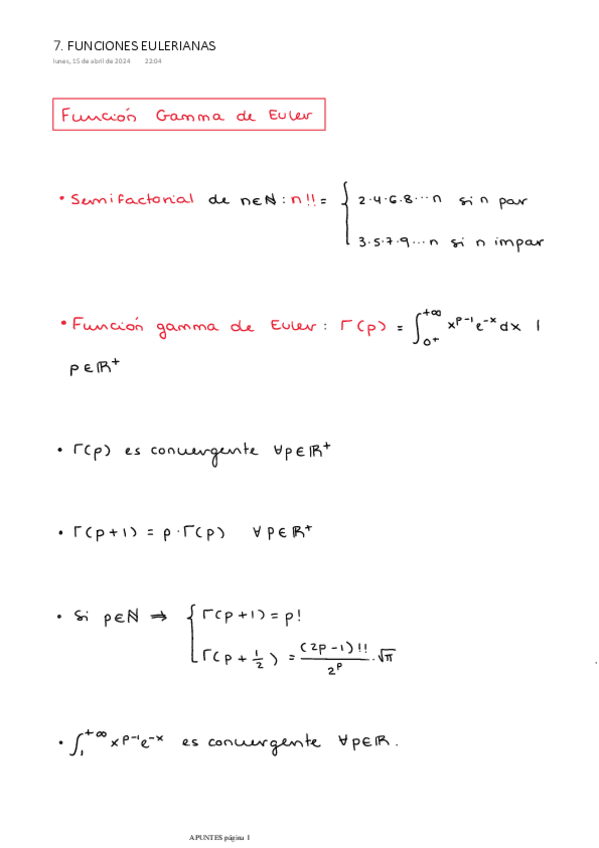 7. FUNCIONES EULERIANAS
lunes, 15 de abril de 2024 22:04
Función Gamma de Euler
• Semifactorial de n∈ℕ : n!! = { 2·4·6·8···n si n par
3·5·7·9...n si n impar
• Función gamma de Euler : Γ(p) = ∫₀₊^+∞ x^p-1 e^-x dx |
p∈ℝ⁺
• Γ(p) es convergente ∀p∈ℝ⁺
• Γ(p+1) = p·Γ(p) ∀p∈ℝ⁺
• Si p∈ℕ ⇒ { Γ(p+1) = p!
Γ(p + 1/2) = (2p-1)!!/2^p · √π
• ∫₁^+∞ x^p-1 e^-x es convergente ∀p∈ℝ.
APUNTES página 1